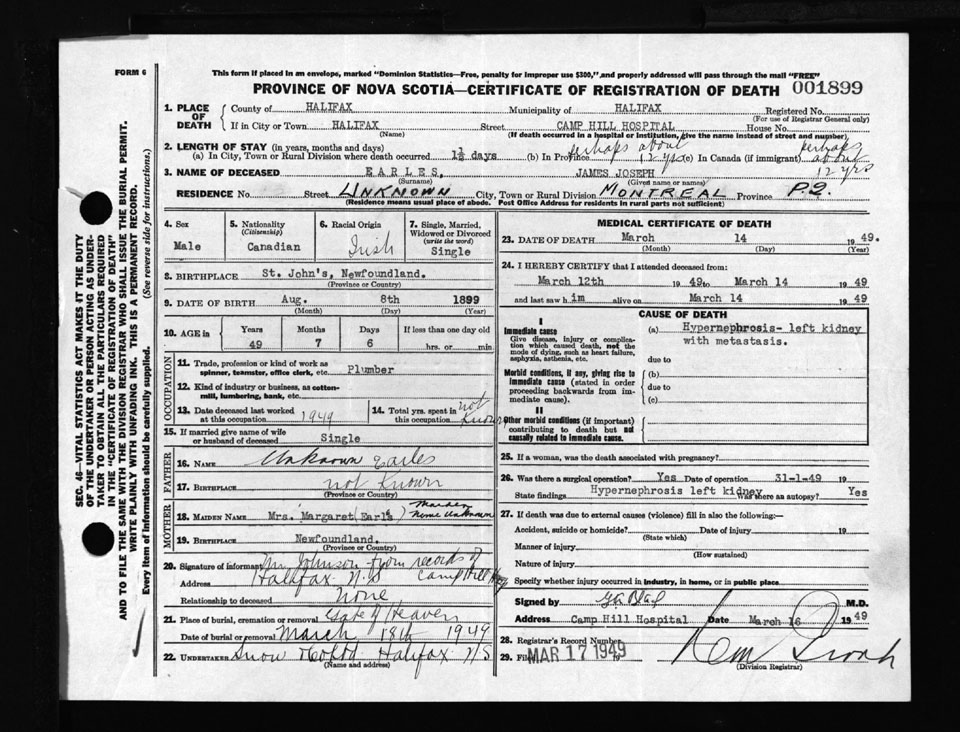 FORM 6
This form if placed in an envelope, marked "Dominion Statistics—Free, penalty for improper use $300," and properly addressed will pass through the mail "FREE"
PROVINCE OF NOVA SCOTIA—CERTIFICATE OF REGISTRATION OF DEATH 001899
1. PLACE OF DEATH
County of HALIFAX Municipality of HALIFAX Registered No.
(For use of Registrar General only)
If in City or Town HALIFAX Street CAMP HILL HOSPITAL House No.
(Name) (If death occurred in a hospital or institution, give the name instead of street and number)
2. LENGTH OF STAY (in years, months and days)
(a) In City, Town or Rural Division where death occurred 1½ days (b) In Province perhaps about 12 yrs (c) In Canada (if immigrant) perhaps about 12 yrs
3. NAME OF DECEASED EARLES, JAMES JOSEPH
(Surname) (Given name or names)
RESIDENCE No. Street UNKNOWN City, Town or Rural Division MONTREAL Province P.Q.
(Residence means usual place of abode. Post Office Address for residents in rural parts not sufficient)
4. Sex Male
5. Nationality (Citizenship) Canadian
6. Racial Origin Irish
7. Single, Married, Widowed or Divorced (write the word) Single
8. BIRTHPLACE St. John's, Newfoundland.
(Province or Country)
9. DATE OF BIRTH Aug. 8th 1899
(Month) (Day) (Year)
10. AGE in Years Months Days If less than one day old
49 7 6 hrs. or min.
OCCUPATION
11. Trade, profession or kind of work as spinner, teamster, office clerk, etc. Plumber
12. Kind of industry or business, as cotton-mill, lumbering, bank, etc.
13. Date deceased last worked at this occupation 1949
14. Total yrs. spent in this occupation not known
15. If married give name of wife or husband of deceased Single
FATHER
16. NAME Unknown Earles
17. BIRTHPLACE not Known
(Province or Country)
MOTHER
18. MAIDEN NAME Mrs. Margaret (Earls) Maiden Name Unknown
19. BIRTHPLACE Newfoundland.
(Province or Country)
20. Signature of informant Mr Johnson from records of Camp Hill Hosp
Address Halifax N.S
Relationship to deceased None
21. Place of burial, cremation or removal Gate of Heaven
Date of burial or removal March 18th 1949
22. UNDERTAKER Snow & Co Ltd Halifax N.S
(Name and address)
MEDICAL CERTIFICATE OF DEATH
23. DATE OF DEATH March 14 1949.
(Month) (Day) (Year)
24. I HEREBY CERTIFY that I attended deceased from:
March 12th 1949 to March 14 1949
and last saw him alive on March 14 1949
CAUSE OF DEATH
I
Immediate cause
Give disease, injury or complication which caused death, not the mode of dying, such as heart failure, asphyxia, asthenia, etc.
(a) Hypernephrosis- left kidney with metastasis.
due to
Morbid conditions, if any, giving rise to immediate cause (stated in order proceeding backwards from immediate cause).
(b)
due to
(c)
II
Other morbid conditions (if important) contributing to death but not causally related to immediate cause.
25. If a woman, was the death associated with pregnancy?
26. Was there a surgical operation? Yes Date of operation 31-1-49 19
State findings Hypernephrosis left kidney Was there an autopsy? Yes
27. If death was due to external causes (violence) fill in also the following:—
Accident, suicide or homicide? Date of injury 19
(State which)
Manner of injury
(How sustained)
Nature of injury
Specify whether injury occurred in industry, in home, or in public place
Signed by M.D.
Address Camp Hill Hospital Date March 16 1949
28. Registrar's Record Number
29. Filed MAR 17 1949
(Division Registrar)
SEC. 46—VITAL STATISTICS ACT MAKES IT THE DUTY
OF THE UNDERTAKER OR PERSON ACTING AS UNDER-
TAKER TO OBTAIN ALL THE PARTICULARS REQUIRED
IN THE "CERTIFICATE OF REGISTRATION OF DEATH"
AND TO FILE THE SAME WITH THE DIVISION REGISTRAR WHO SHALL ISSUE THE BURIAL PERMIT.
WRITE PLAINLY WITH UNFADING INK. THIS IS A PERMANENT RECORD.
Every item of information should be carefully supplied. (See reverse side for instructions.)